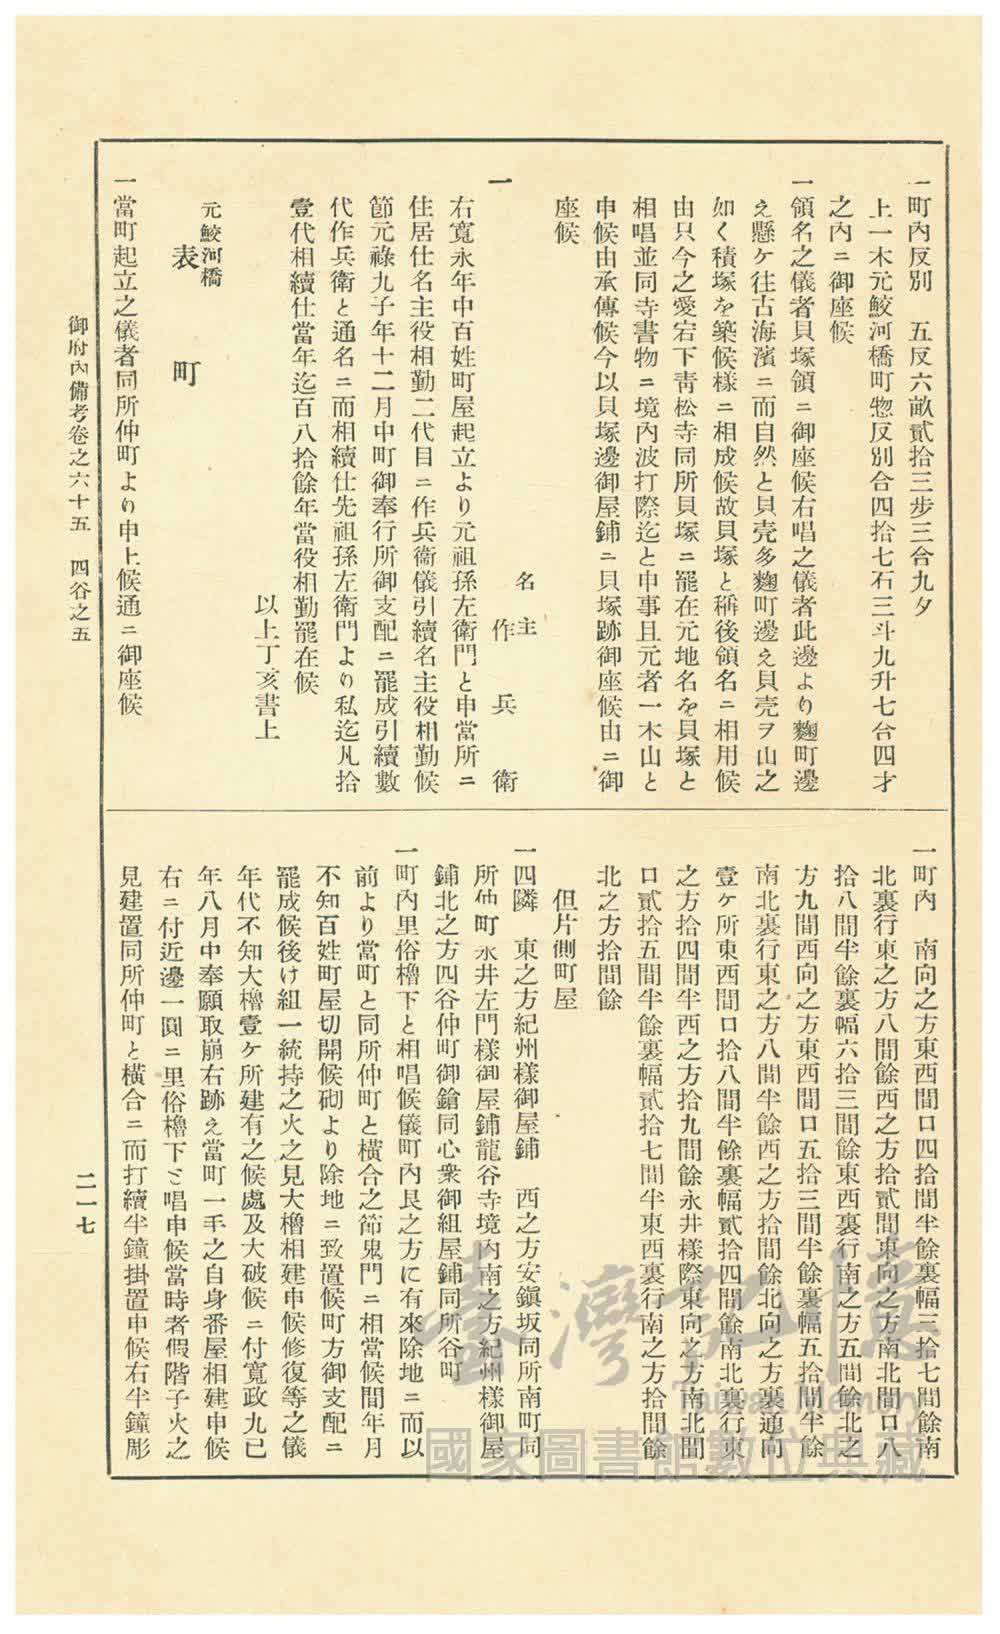 一町內反別　五反六畝貳拾三步三合九夕
上一木元鮫河橋町惣反別合四拾七石三斗九升七合四才
之內ニ御座候
一領名之儀者貝塚領ニ御座候右唱之儀者此邊より麴町邊
え懸ケ往古海濱ニ而自然と貝壳多麴町邊え貝壳ヲ山之
如く積塚を築候樣ニ相成候故貝塚と稱後領名ニ相用候
由只今之愛宕下靑松寺同所貝塚ニ罷在元地名を貝塚と
相唱並同寺書物ニ境內波打際迄と申事且元者一木山と
申候由承傳候今以貝塚邊御屋鋪ニ貝塚跡御座候由ニ御
座候
名主
一　作兵衞
右寬永年中百姓町屋起立より元祖孫左衞門と申當所ニ
住居仕名主役相勤二代目ニ作兵衞儀引續名主役相勤候
節元祿九子年十二月中町御奉行所御支配ニ罷成引續數
代作兵衞と通名ニ而相續仕先祖孫左衞門より私迄凡拾
壹代相續仕當年迄百八拾餘年當役相勤罷在候
以上丁亥書上
元鮫河橋
表町
一當町起立之儀者同所仲町より申上候通ニ御座候
一町內　南向之方東西間口四拾間半餘裏幅三拾七間餘南
北裏行東之方八間餘西之方拾貳間東向之方南北間口八
拾八間半餘裏幅六拾三間餘東西裏行南之方五間餘北之
方九間西向之方東西間口五拾三間半餘裏幅五拾間半餘
南北裏行東之方八間半餘西之方拾間餘北向之方裏通向
壹ケ所東西間口拾八間半餘裏幅貳拾四間餘南北裏行東
之方拾四間半西之方拾九間餘永井樣際東向之方南北間
口貳拾五間半餘裏幅貳拾七間半東西裏行南之方拾間餘
北之方拾間餘
但片側町屋
一四隣　東之方紀州樣御屋鋪　西之方安鎭坂同所南町同
所仲町永井左門樣御屋鋪龍谷寺境內南之方紀州樣御屋
鋪北之方四谷仲町御鎗同心衆御組屋鋪同所谷町
一町內里俗櫓下と相唱候儀町內艮之方に有來除地ニ而以
前より當町と同所仲町と橫合之節鬼門ニ相當候間年月
不知百姓町屋切開候砌より除地ニ致置候町方御支配ニ
罷成候後け組一統持之火之見大櫓相建申候修復等之儀
年代不知大櫓壹ケ所建有之候處及大破候ニ付寬政九已
年八月中奉願取崩右跡え當町一手之自身番屋相建申候
右ニ付近邊一圓ニ里俗櫓下と唱申候當時者假階子火之
見建置同所仲町と橫合ニ而打續半鐘掛置申候右半鐘彫
御府內備考卷之六十五　四谷之五
二一七
臺灣記憶
Taiwan Memory
國家圖書館數位典藏